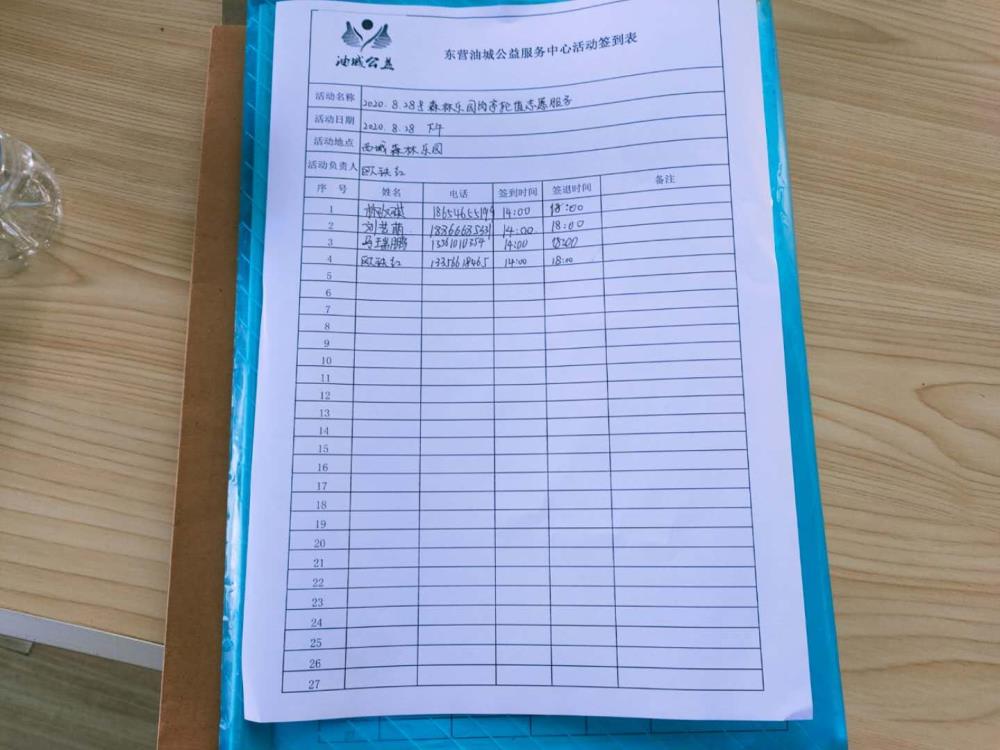 油城公益
东营油城公益服务中心活动签到表
活动名称 2020.8.28号森林乐园岗亭轮值志愿服务
活动日期 2020.8.28 下午
活动地点 西城森林乐园
活动负责人 欧铁红
序 号 姓名 电话 签到时间 签退时间 备注
1 14:00 18:00
2 刘芸萌 18366635331 14:00 18:00
3 马瑞鹏 14:00 18:00
4 欧铁红 13356618465 14:00 18:00
5
6
7
8
9
10
11
12
13
14
15
16
17
18
19
20
21
22
23
24
25
26
27